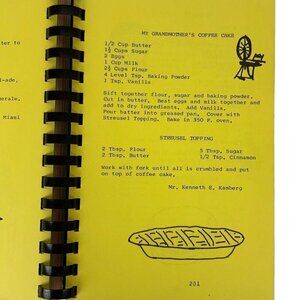 ter to
l-ade,
erale,
Miami
MY GRANDMOTHER'S COFFEE CAKE
1/2 Cup Butter
1½ Cups Sugar
2 Eggs
1 Cup Milk
2½ Cups Flour
4 Level Tsp. Baking Powder
1 Tsp. Vanilla
Sift together flour, sugar and baking powder,
Cut in butter, Beat eggs and milk together and
add to dry ingredients, Add Vanilla.
Pour batter into greased pan, Cover with
Streusel Topping, Bake in 350 F, oven,
STREUSEL TOPPING
2 Tbsp. Flour 5 Tbsp. Sugar
2 Tbsp. Butter 1/2 Tsp. Cinnamon
Work with fork until all is crumbled and put
on top of coffee cake,
Mr. Kenneth E. Kamberg
201